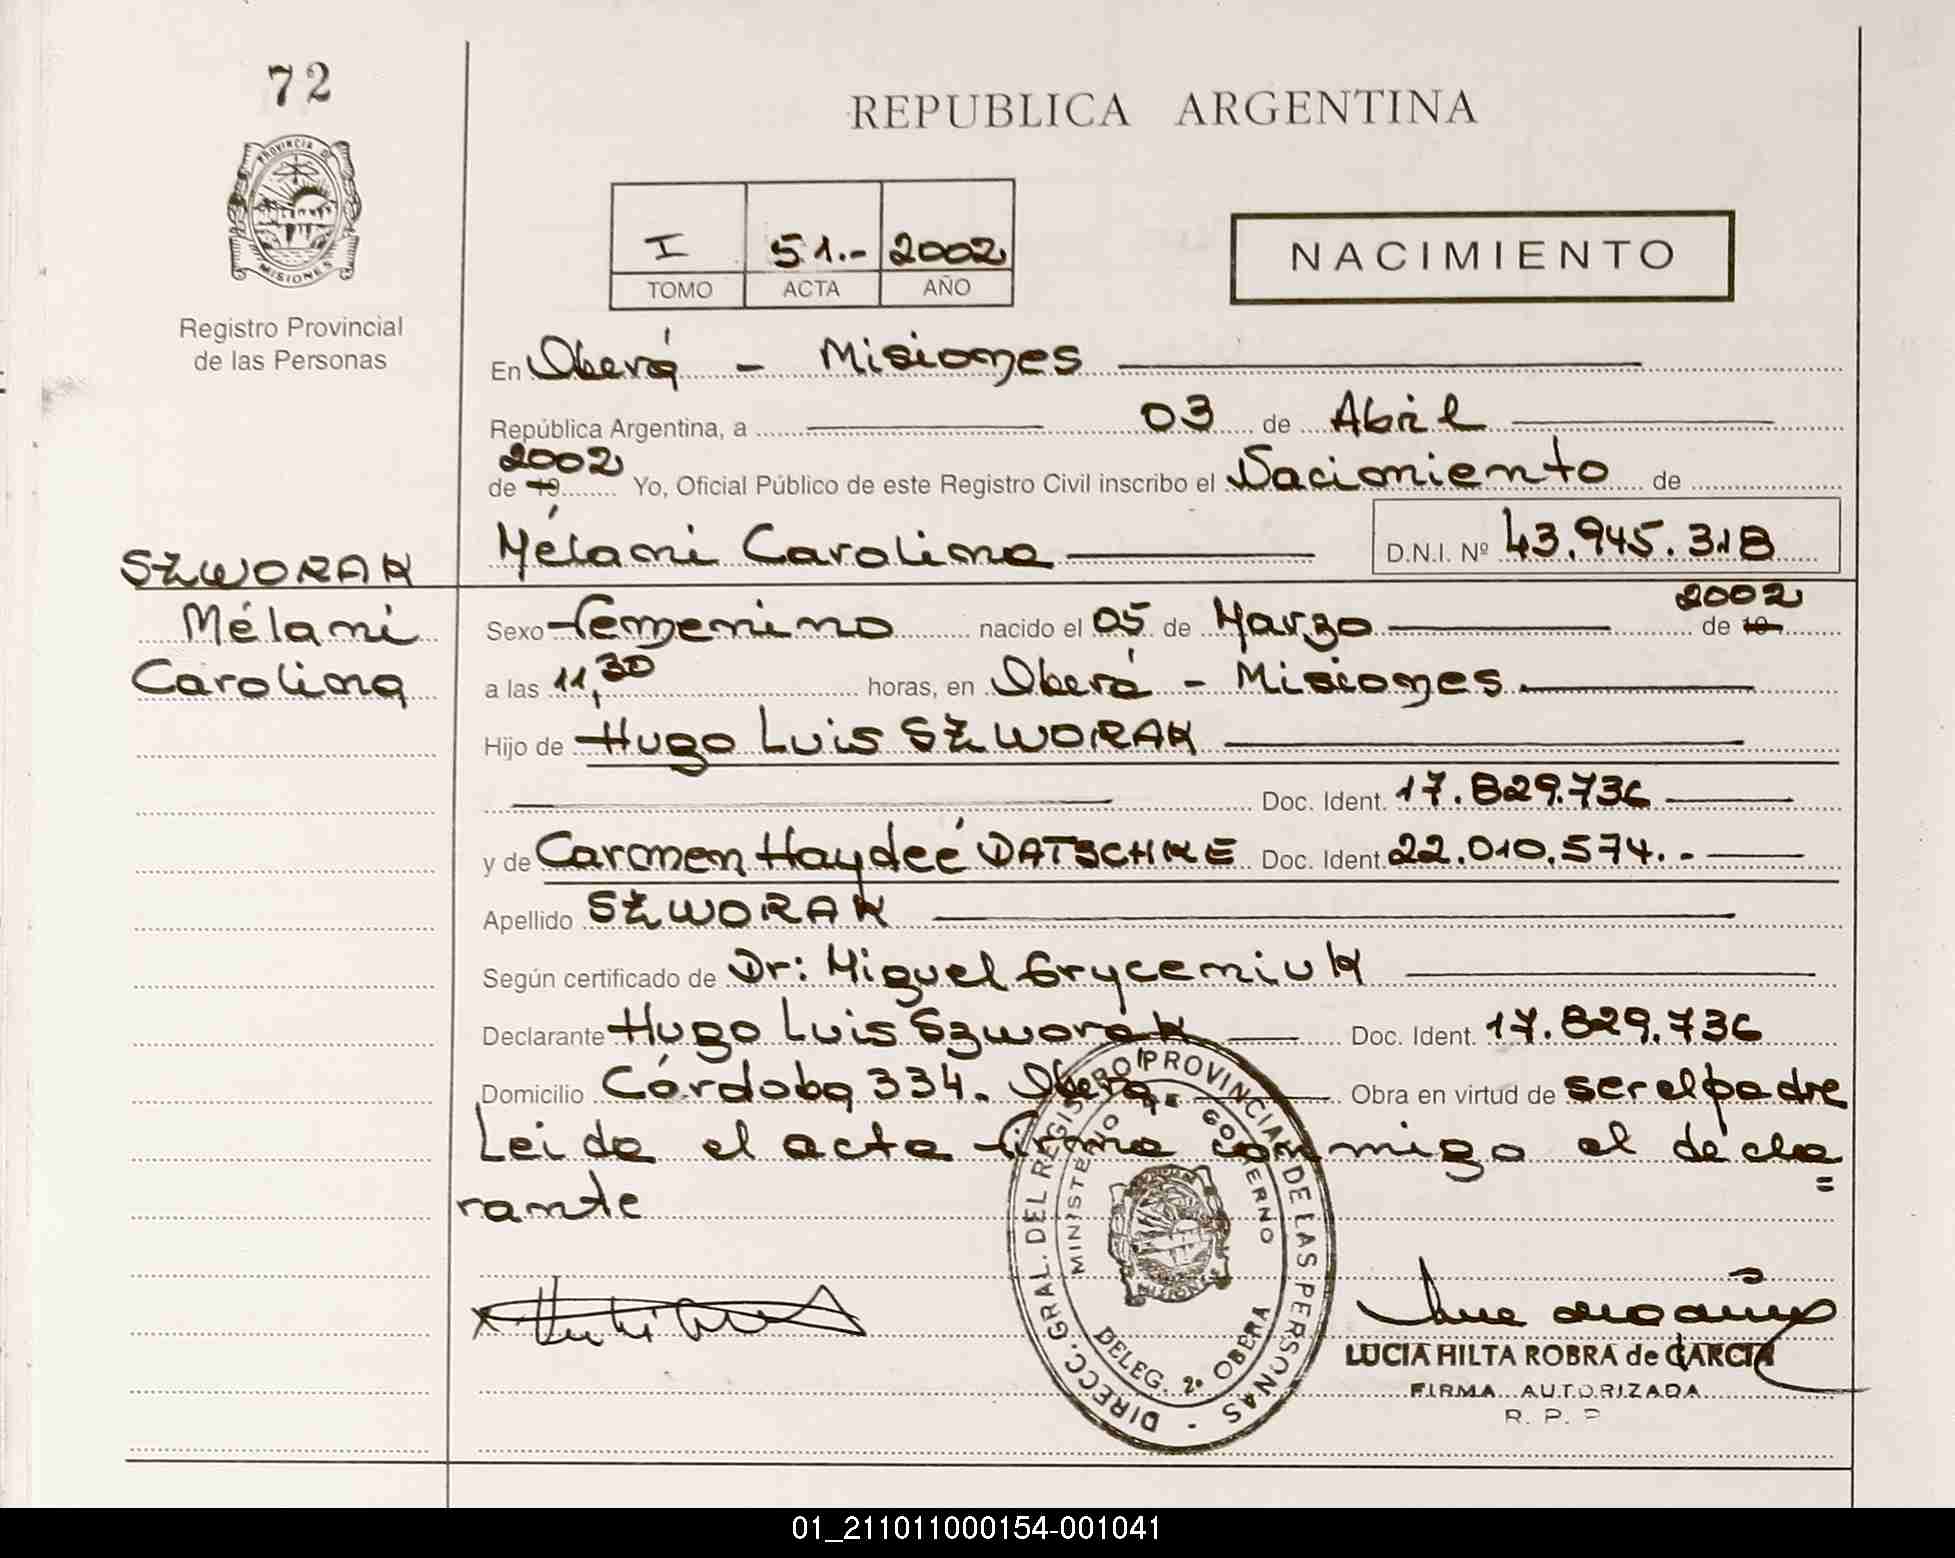 72
REPUBLICA ARGENTINA
PROVINCIA DE
MISIONES
I 51.- 2002
TOMO ACTA AÑO
NACIMIENTO
Registro Provincial
de las Personas
En Oberá - Misiones
República Argentina, a 03 de Abril
2002
de 19 Yo, Oficial Público de este Registro Civil inscribo el Nacimiento de
Mélani Carolina D.N.I. Nº 43.945.318
SZWORAK
Mélani
Carolina
2002
Sexo femenino nacido el 05 de Marzo de 19
a las 11,30 horas, en Oberá - Misiones
Hijo de Hugo Luis SZWORAK
Doc. Ident. 17.829.736
y de Carmen Haydeé DATSCHKE Doc. Ident. 22.010.574.-
Apellido SZWORAK
Según certificado de Dr: Miguel Gryceniuk
Declarante Hugo Luis Szworak Doc. Ident. 17.829.736
Domicilio Córdoba 334. Oberá. Obra en virtud de ser el padre
Leida el acta firma conmigo el decla=
rante
DIRECC. GRAL. DEL REGISTRO PROVINCIAL DE LAS PERSONAS -
MINISTERIO DE GOBIERNO
MISIONES
DELEG. 2º OBERA
LUCIA HILTA ROBRA de GARCIA
FIRMA AUTORIZADA
R. P. P
01_211011000154-001041